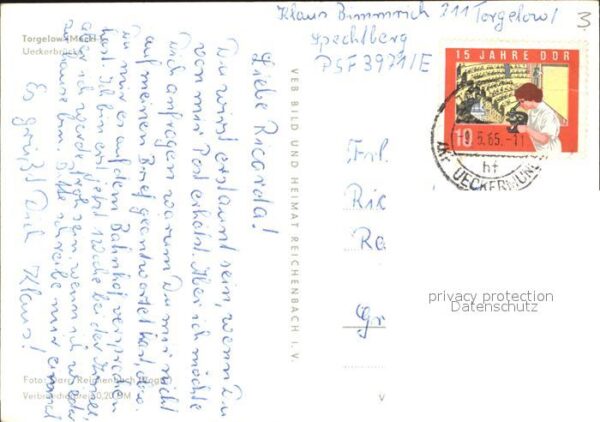 Klaus Bimmrich 211 Torgelow/
Spechtberg
PSF 3971/E
3
Torgelow (Meckl.)
Ueckerbrücke
15 JAHRE DDR
10
-9.5.65.-11
ht
UECKERMÜN
Liebe Ricorda!
Du wirst erstaunt sein, wenn Du
von mir Post erhälst. Aber ich möchte
Dich anfragen warum Du mir nicht
auf meinen Brief geantwortet hast, den
Du mir es auf dem Bahnhof versprochen
hast. Ich bin erst jetzt 1 Woche bei der Armee
aber ich werde froh sein wenn ich wieder
zu Hause bin. Bitte schreibe mir einmal
Es grüßt Dich Klaus!
VEB BILD UND HEIMAT REICHENBACH I. V.
Frl.
Ric
Ra
Gr
privacy protection
Datenschutz
Foto: Darr, Reichenbach (Vogtl.)
Verbraucherpreis 0,20 DM
V